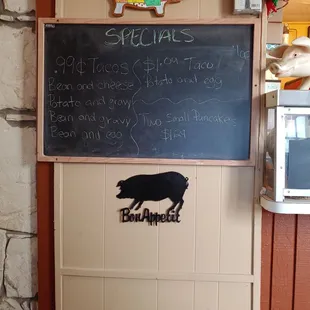 SPECIALS
.99¢ Tacos
Bean and cheese
Potato and gravy
Bean and gravy
Bean and egg
$1.09 Taco
Potato and egg
Two Small Pancakes
Bon Appetit